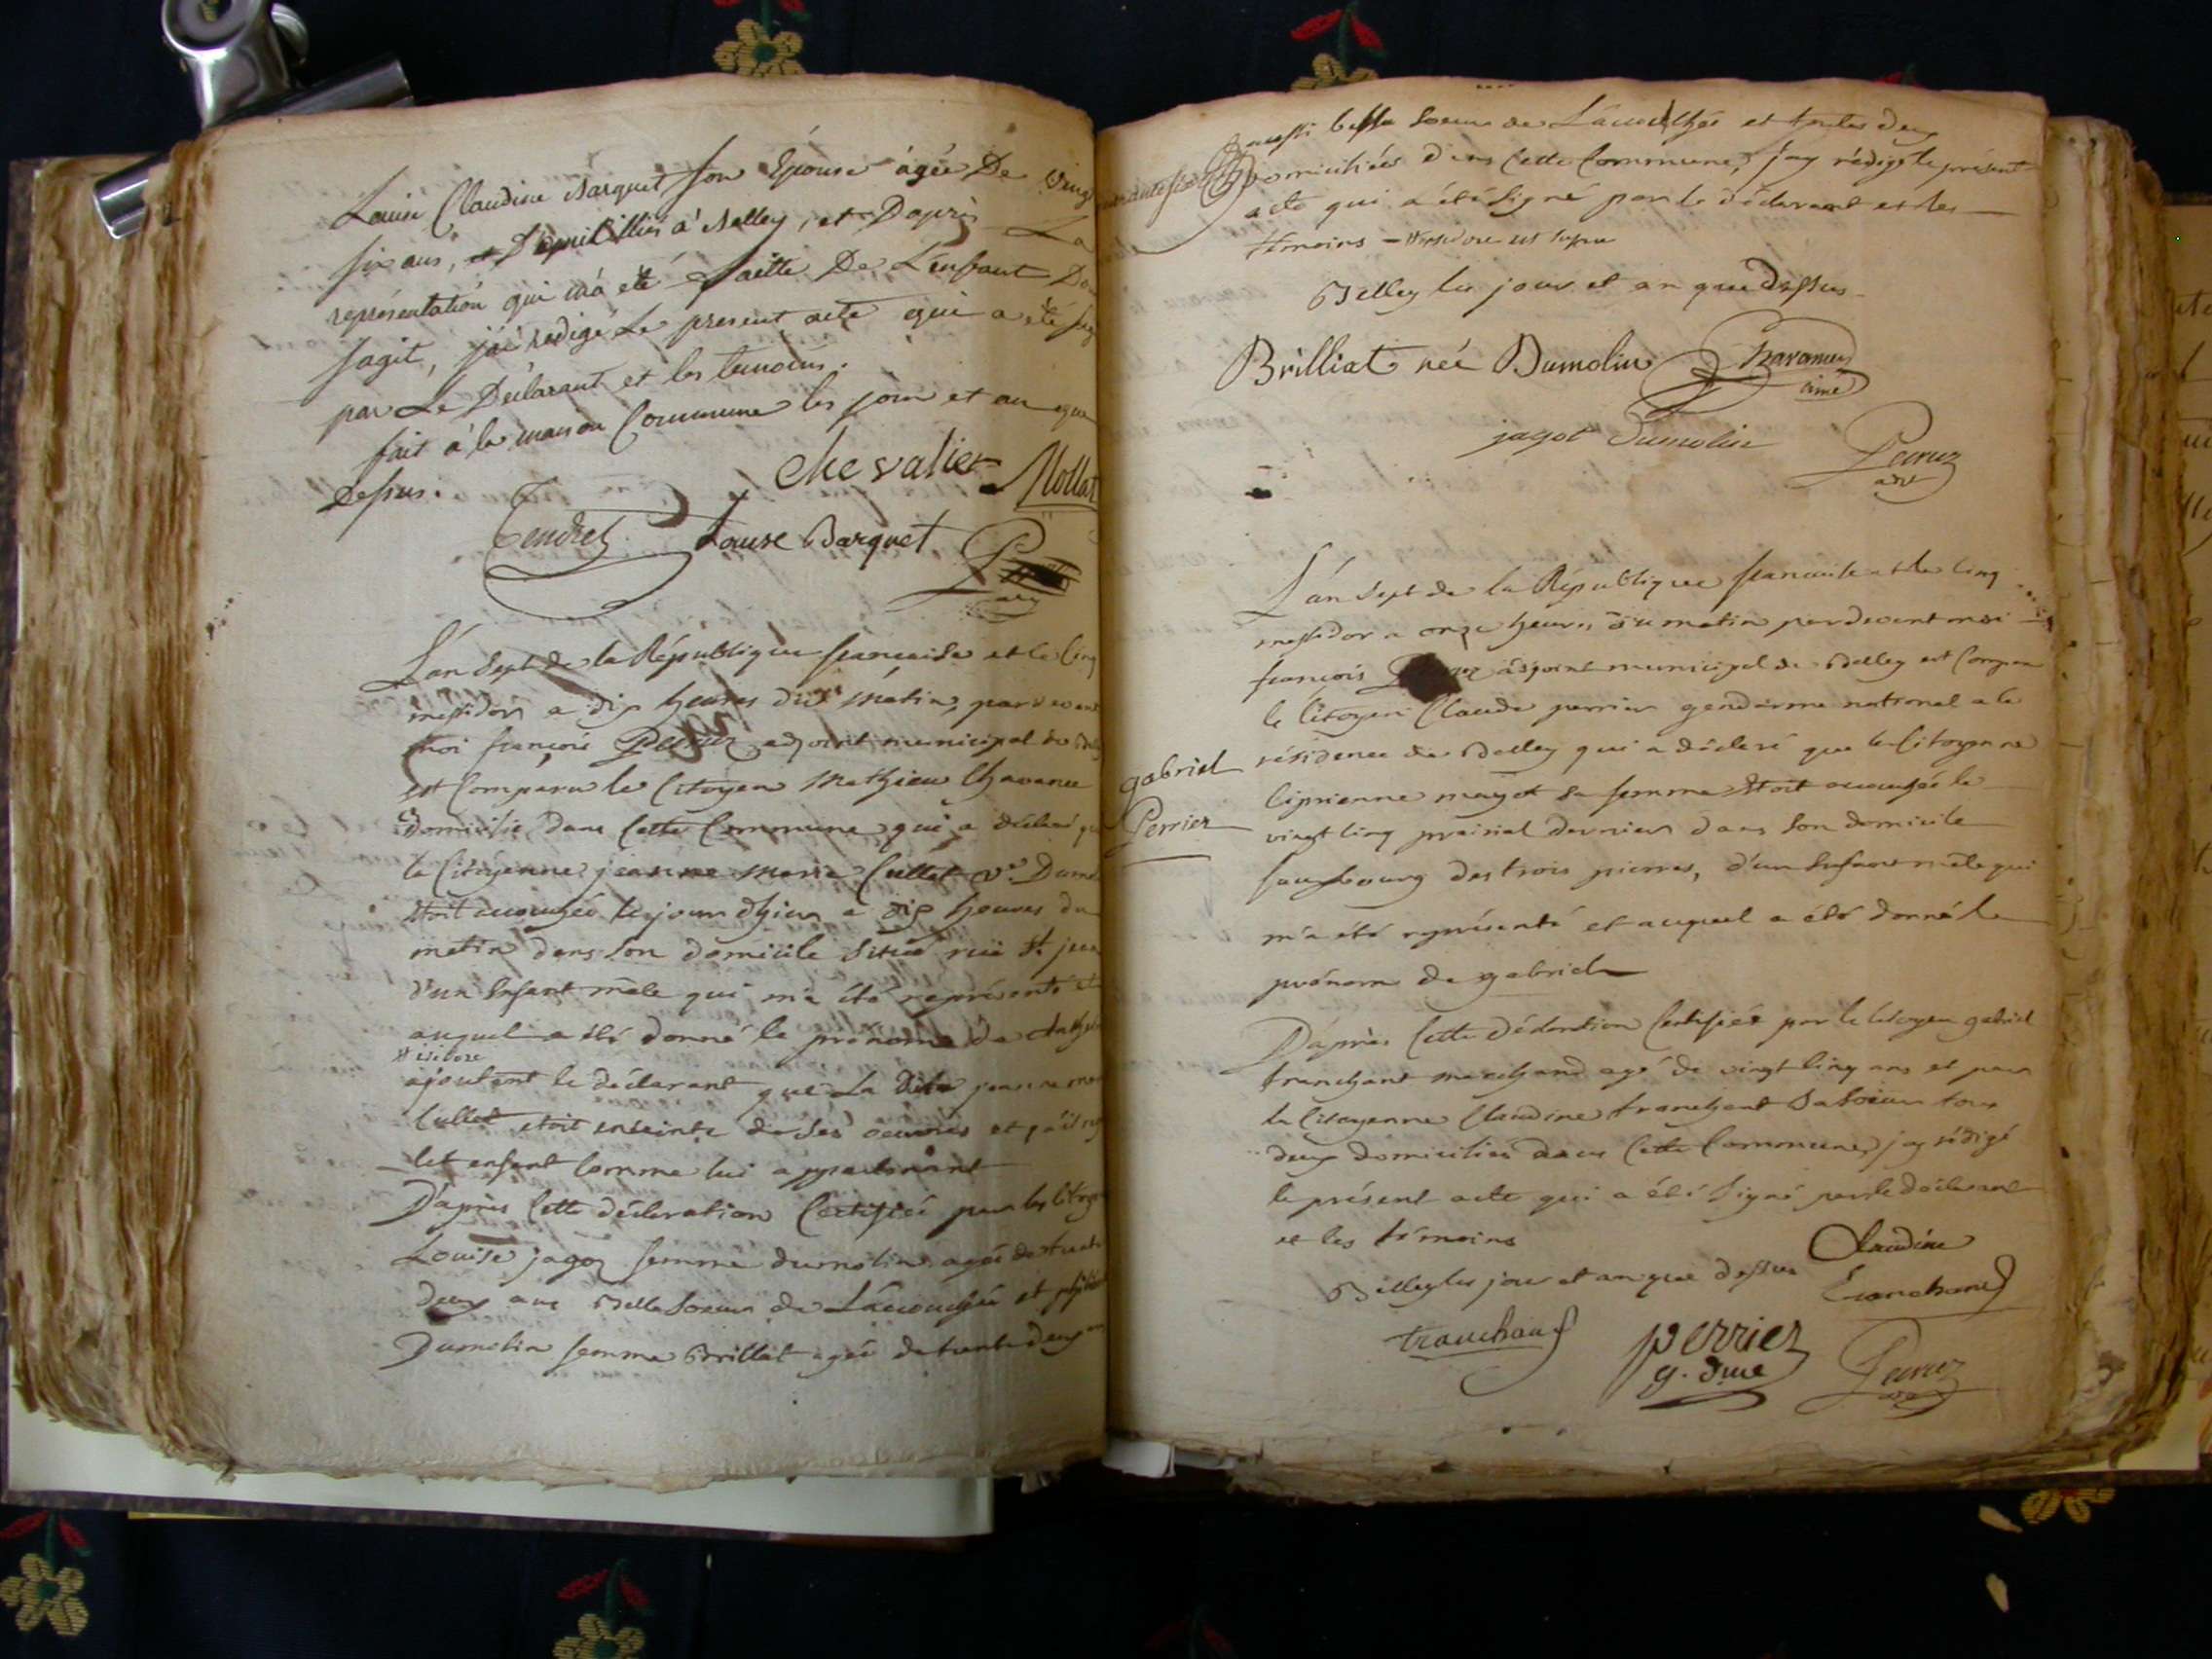 Louise Claudine Barquet son Épouse âgée De vingt
six ans, et Domicilliés à Belley, et D'après La
représentation qui m'a été faitte De L'enfant Dont
sagit, j'ai redigé Le present acte qui a été sig
par Le Déclarant et les temoins.
fait à la maison Commune les jour et an que
Dessus.
Chevalier Mollat
Tendret Louise Barquet
L'an Sept de la République francaise et le Cinq
messidor a dix heures du matin, pardevant
moi françois Peeruz adjoint municipal de Belley
est Comparu le Citoyen Mathieu Chavance
domicilié dans Cette Commune qui a déclaré que
la Citoyenne jeanne Marie Cullet Ve. Dumo
étoit accouchée le jour d'hier a dix heures du
matin dans son domicile Situé rue St. jean
d'un Enfant mâle qui m'a été représenté et
auquel a été donné le prénoms de
# isidore
ajoutant le déclarant que La dite jeanne mar
Cullet étoit enceinte de Ses oeuvres et
Cet enfant Comme lui appartenant
D'après Cette déclaration Certifiée par les Citoye
Louise jagoz femme dumolin agée de trente
deux ans Belle Soeur de L'accouchée et
Dumolin femme Brillat agée de trente deux ans
aussi belle Soeur de L'accouchée et toutes deux
Domiciliées dans Cette Commune, j'ay rédigé le présent
acte qui a été Signé par le déclarant et les
témoins —
Belley les jour et an que Dessus
Brilliat née Dumolin Chavance
aîné
jagot Dumolin Peeruz
adjt
L'an Sept de la République francaise et le Cinq
messidor a onze heures du matin pardevant moi
françois adjoint municipal de Belley est Comparu
le Citoyen Claude perrier gendarme national a la
gabriel
Perrier
résidence de Belley qui a déclaré que la Citoyenne
Ciprienne mayot sa femme étoit accouchée le
vingt Cinq prairial dernier dans Son domicile
fauxbourg des trois pierres, d'un Enfant mâle qui
m'a été représenté et auquel a été donné le
prénom de gabriel
D'après Cette déclaration Certifiée par le Citoyen gabriel
tranchant marchand agé de vingt Cinq ans et par
la Citoyenne Claudine tranchant Sa Soeur tous
deux domiciliés dans Cette Commune, j'ay rédigé
le présent acte qui a été Signé par le déclarant
et les témoins
Belley les jour et an que dessus
Claudine
Tranchand
tranchant perrier
g. dme
Peeruz
adjt